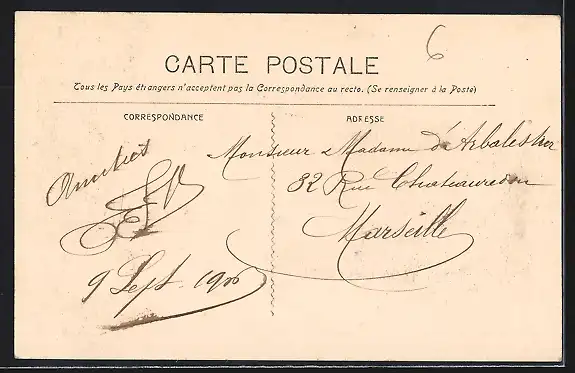 6
CARTE POSTALE
Tous les Pays étrangers n'acceptent pas la Correspondance au recto. (Se renseigner à la Poste)
CORRESPONDANCE
ADRESSE
Monsieur & Madame
32 Rue Chateauredon
Marseille
Amitiés
9 Sept. 1906